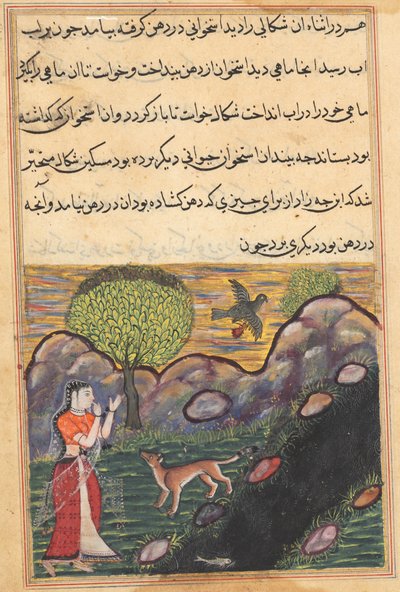 هم در اثناء ان شکالی را دید اسخوانی در دهن کرفته بیامد چون بر لب
اب رسید انجا ماهی دید اسخوان از دهن بینداخت و خواست تا ان ماهی را بکیرد
ماهی خود را در اب انداخت شکال خواست تا باز کردد و ان اسخوان که کذاشته
بود بستاند چه بیند ان اسخوان حیوانی دیکر برده بود مسکین شکال متحیّر
شد که این چه راز از برای چیزی که دهن کشاده بود ان در دهن نیامد و آنچه
در دهن بود دیکری برد چون